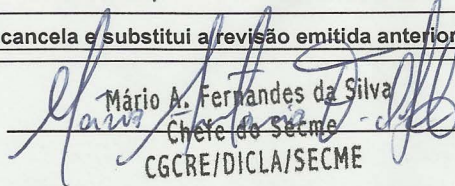 cancela e substitui a revisão emitida anterior
Mário A. Fernandes da Silva
Chefe do Secme
CGCRE/DICLA/SECME